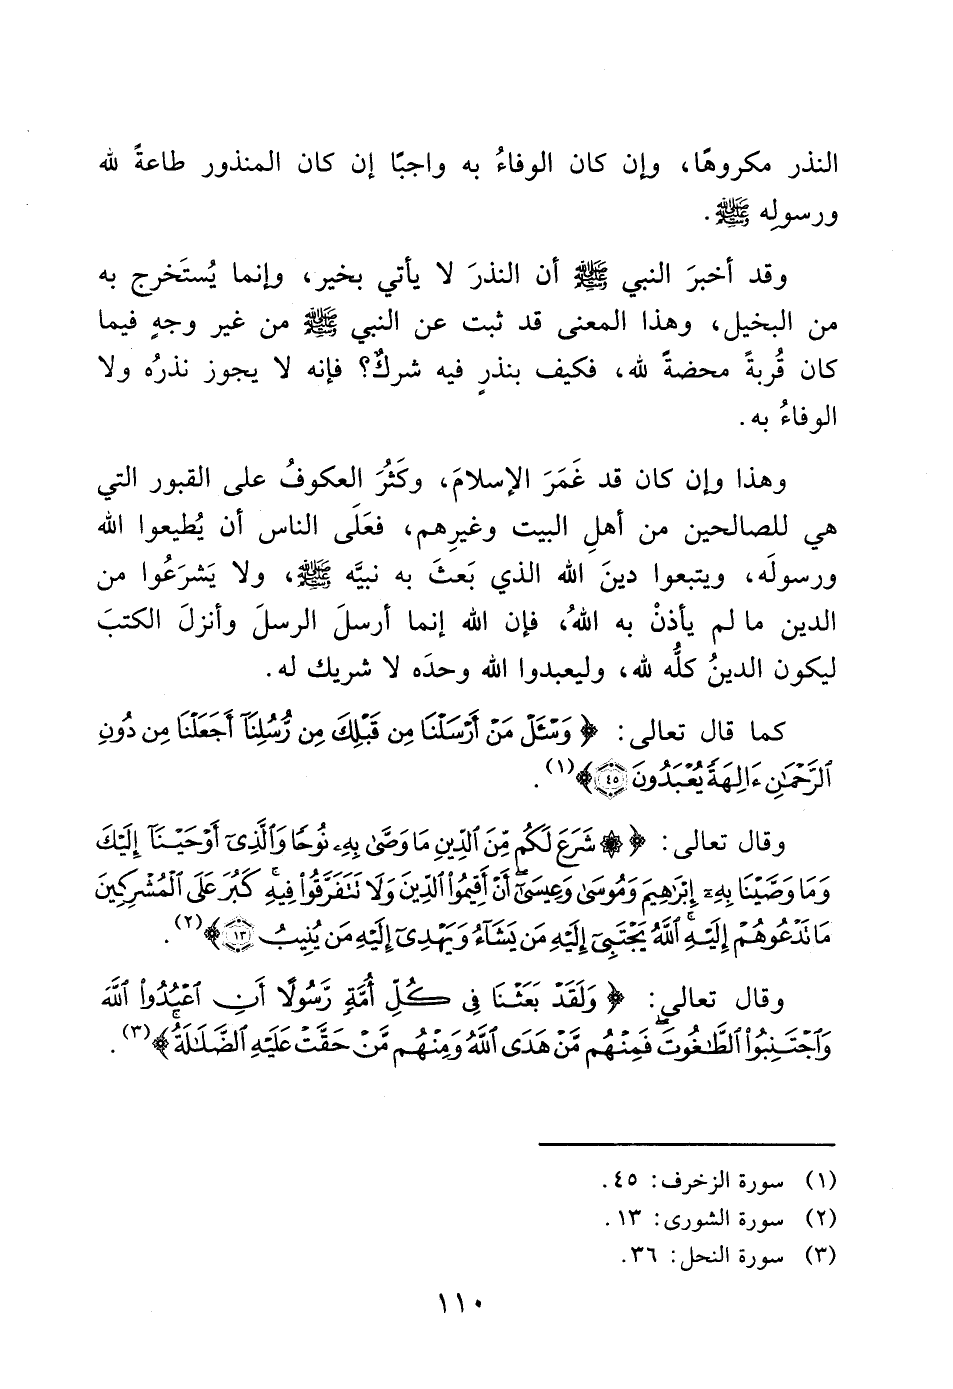 النذر مكروهًا، وإن كان الوفاءُ به واجبًا إن كان المنذور طاعةً لله
ورسولِه ﷺ.
وقد أخبرَ النبي ﷺ أن النذرَ لا يأتي بخير، وإنما يُستَخرج به
من البخيل، وهذا المعنى قد ثبت عن النبي ﷺ من غير وجهٍ فيما
كان قُربةً محضةً لله، فكيف بنذرٍ فيه شركٌ؟ فإنه لا يجوز نذرُه ولا
الوفاءُ به.
وهذا وإن كان قد غَمَرَ الإسلامَ، وكَثُرَ العكوفُ على القبور التي
هي للصالحين من أهلِ البيت وغيرِهم، فعَلَى الناس أن يُطيعوا الله
ورسولَه، ويتبعوا دينَ الله الذي بَعثَ به نبيَّه ﷺ، ولا يَشرَعُوا من
الدين ما لم يأذنْ به اللهُ، فإن الله إنما أرسلَ الرسلَ وأنزلَ الكتبَ
ليكون الدينُ كلُّه لله، وليعبدوا الله وحدَه لا شريك له.
كما قال تعالى: ﴿ وَسْـَٔلْ مَنْ أَرْسَلْنَا مِن قَبْلِكَ مِن رُّسُلِنَآ أَجَعَلْنَا مِن دُونِ
ٱلرَّحْمَٰنِ ءَالِهَةً يُعْبَدُونَ ٤٥﴾(١).
وقال تعالى: ﴿ ۞ شَرَعَ لَكُم مِّنَ ٱلدِّينِ مَا وَصَّىٰ بِهِۦ نُوحًا وَٱلَّذِىٓ أَوْحَيْنَآ إِلَيْكَ
وَمَا وَصَّيْنَا بِهِۦٓ إِبْرَٰهِيمَ وَمُوسَىٰ وَعِيسَىٰٓ أَنْ أَقِيمُوا۟ ٱلدِّينَ وَلَا تَتَفَرَّقُوا۟ فِيهِ ۚ كَبُرَ عَلَى ٱلْمُشْرِكِينَ
مَا تَدْعُوهُمْ إِلَيْهِ ۚ ٱللَّهُ يَجْتَبِىٓ إِلَيْهِ مَن يَشَآءُ وَيَهْدِىٓ إِلَيْهِ مَن يُنِيبُ ١٣﴾(٢).
وقال تعالى: ﴿ وَلَقَدْ بَعَثْنَا فِى كُلِّ أُمَّةٍ رَّسُولًا أَنِ ٱعْبُدُوا۟ ٱللَّهَ
وَٱجْتَنِبُوا۟ ٱلطَّٰغُوتَ ۖ فَمِنْهُم مَّنْ هَدَى ٱللَّهُ وَمِنْهُم مَّنْ حَقَّتْ عَلَيْهِ ٱلضَّلَٰلَةُ ۚ﴾(٣).
(١) سورة الزخرف: ٤٥.
(٢) سورة الشورى: ١٣.
(٣) سورة النحل: ٣٦.
١١٠